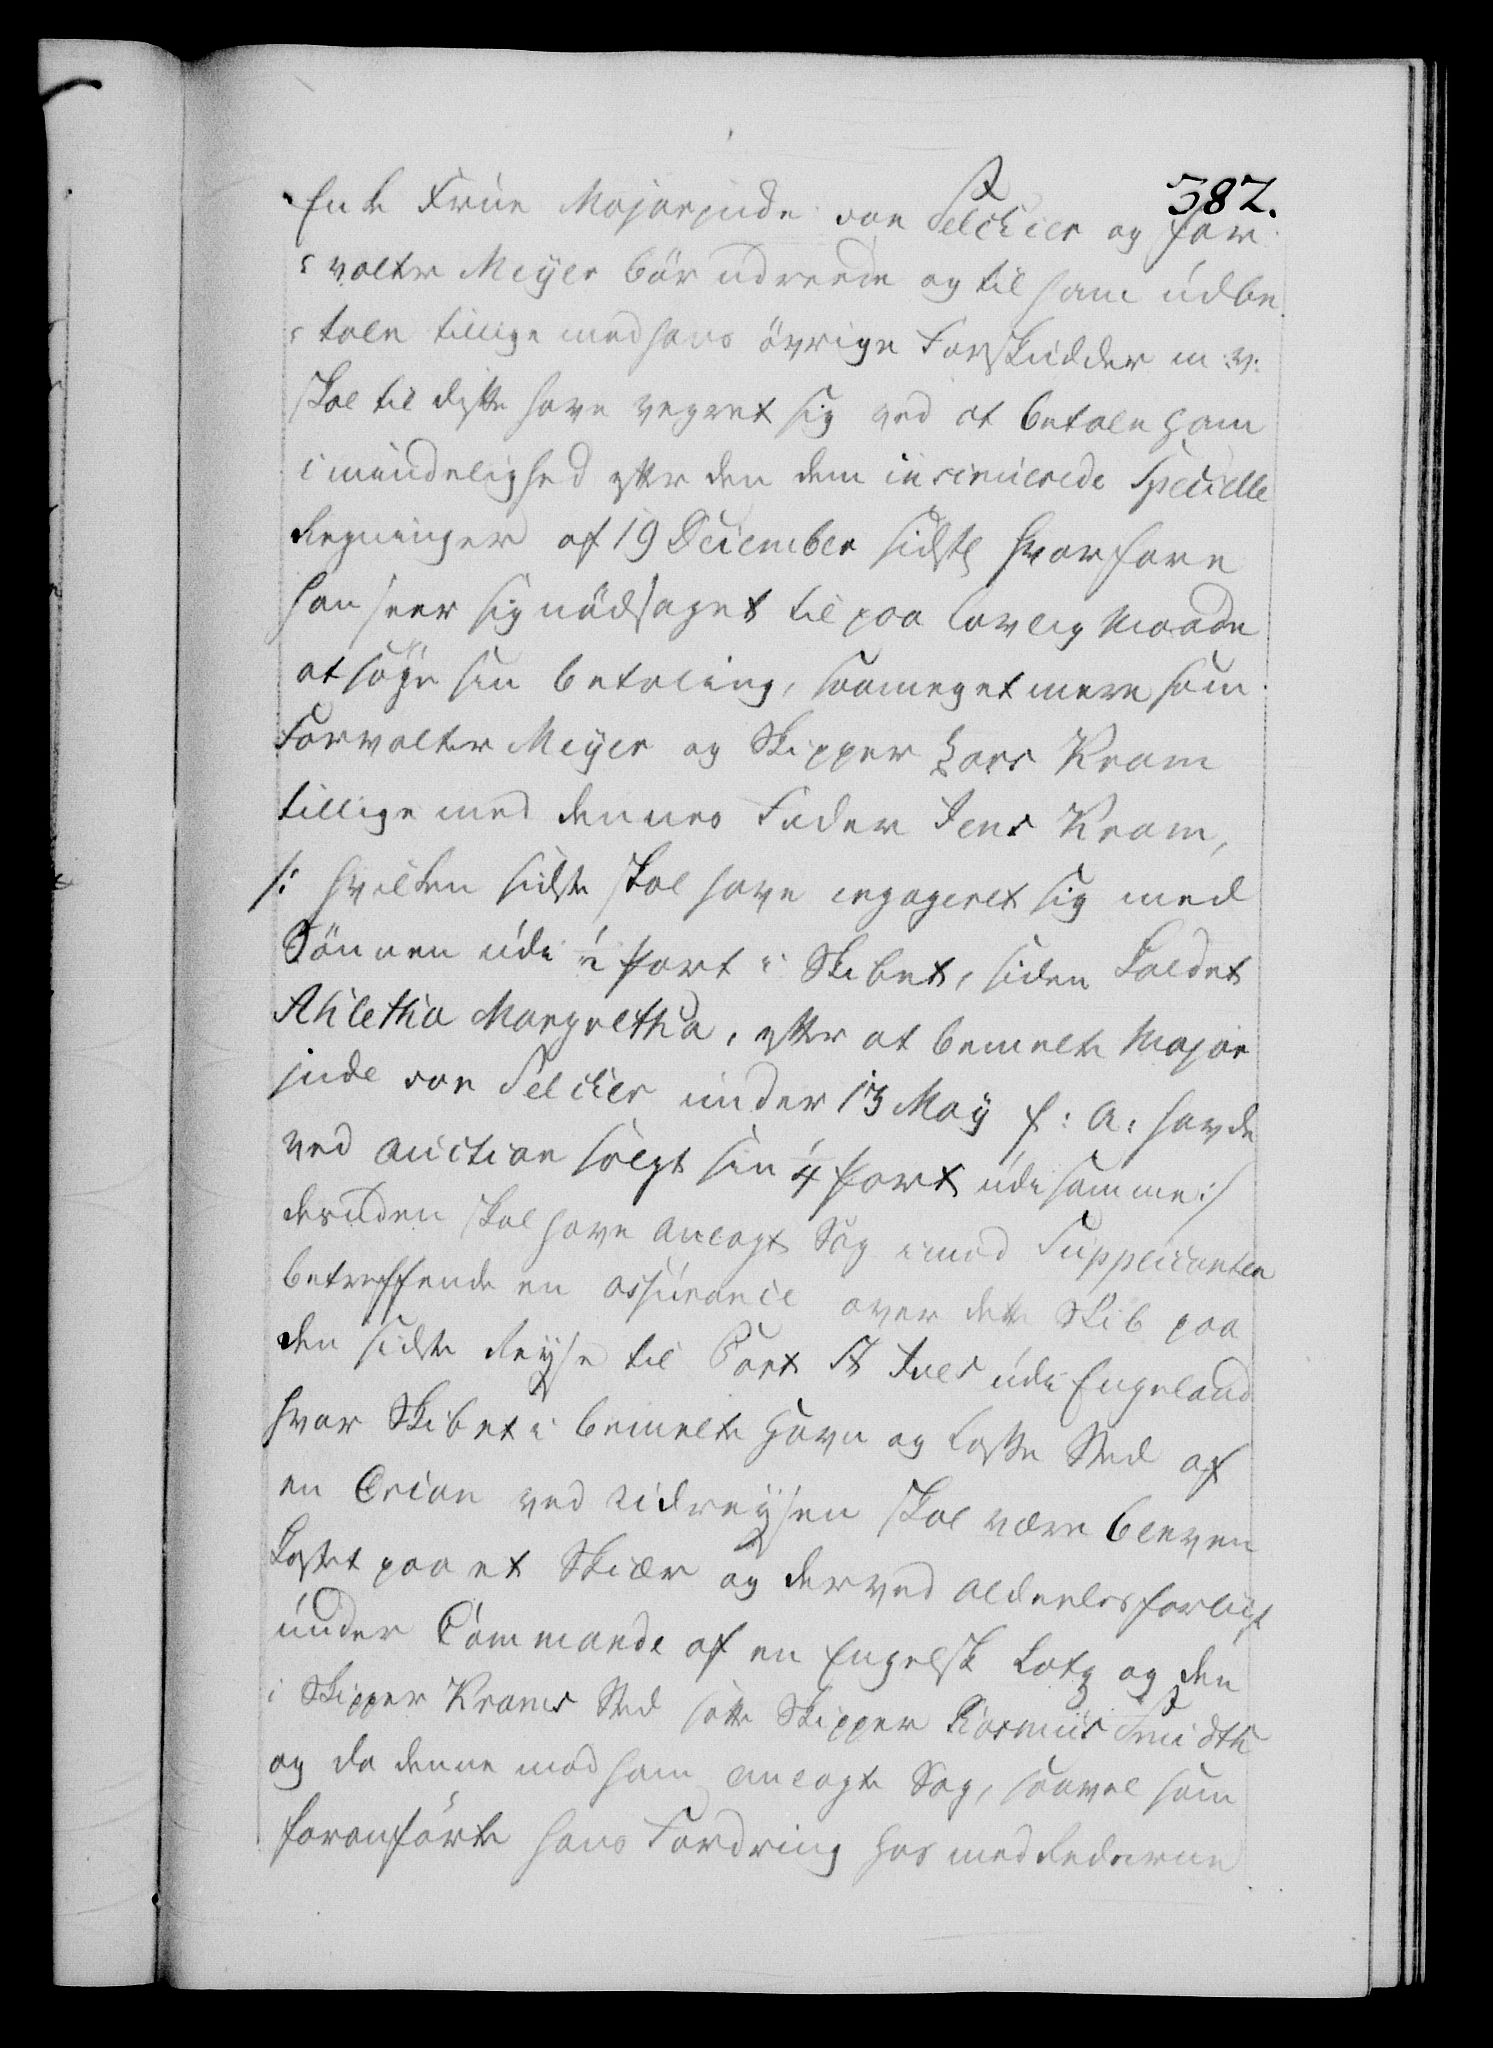 382.
Enke Frue Majorinde von Felckier og for
valter Meyer bör udreede og til ham udbe
tale tillige med hans övrige Forskudder m: v:
skal til dette have vegret sig ved at betale ham
i mindelighed efter den dem insinuerede Specielle
Regninger af 19 December sidst, hvorfore
han seer sig nödsaget til paa lovlig Maade
at söge sin betaling, saameget mere som
Forvalter Meyer og Skipper Lars Kram
tillige med dennes Fader Jens Kram,
/: hvilken sidste skal have engageret sig med
Sönnen udi 1/2 part i Skibet, siden kaldet
Ahletha Margretha, efter at bemelte Major
inde von Felckier under 13 May f: A: havde
ved auction solgt sin 1/4 part udi samme :/
desuden skal have anlagt Sag imod Supplicanten
betreffende en assurance over dette Skib paa
den sidste Reyse til Port St Ives udi Engeland
hvor Skibet i bemelte Havn og Losse Sted af
en Orian ved Udreysen skal være bleven
kastet paa et Skiær og derved aldeeles forliist
under Commando af en Engelsk Lots og den
i Skipper Krams Sted satte Skipper Rasmus Smidth
og da denne mod ham anlagte Sag, saavel som
foranförte hans Fordring hos med Rederne